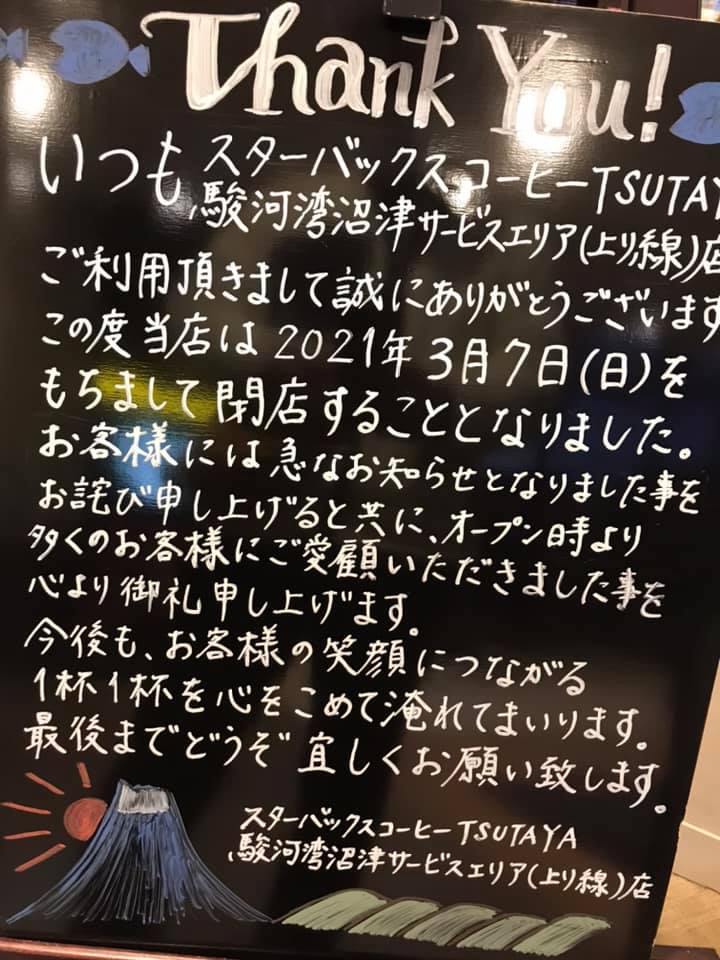 Thank You!
いつもスターバックスコーヒーTSUTAYA
駿河湾沼津サービスエリア(上り線)店
ご利用頂きまして誠にありがとうございます
この度当店は2021年3月7日(日)を
もちまして閉店することとなりました。
お客様には急なお知らせとなりました事を
お詫び申し上げると共に、オープン時より
多くのお客様にご愛顧いただきました事を
心より御礼申し上げます。
今後も、お客様の笑顔につながる
1杯1杯を心をこめて淹れてまいります。
最後までどうぞ宜しくお願い致します。
スターバックスコーヒーTSUTAYA
駿河湾沼津サービスエリア(上り線)店